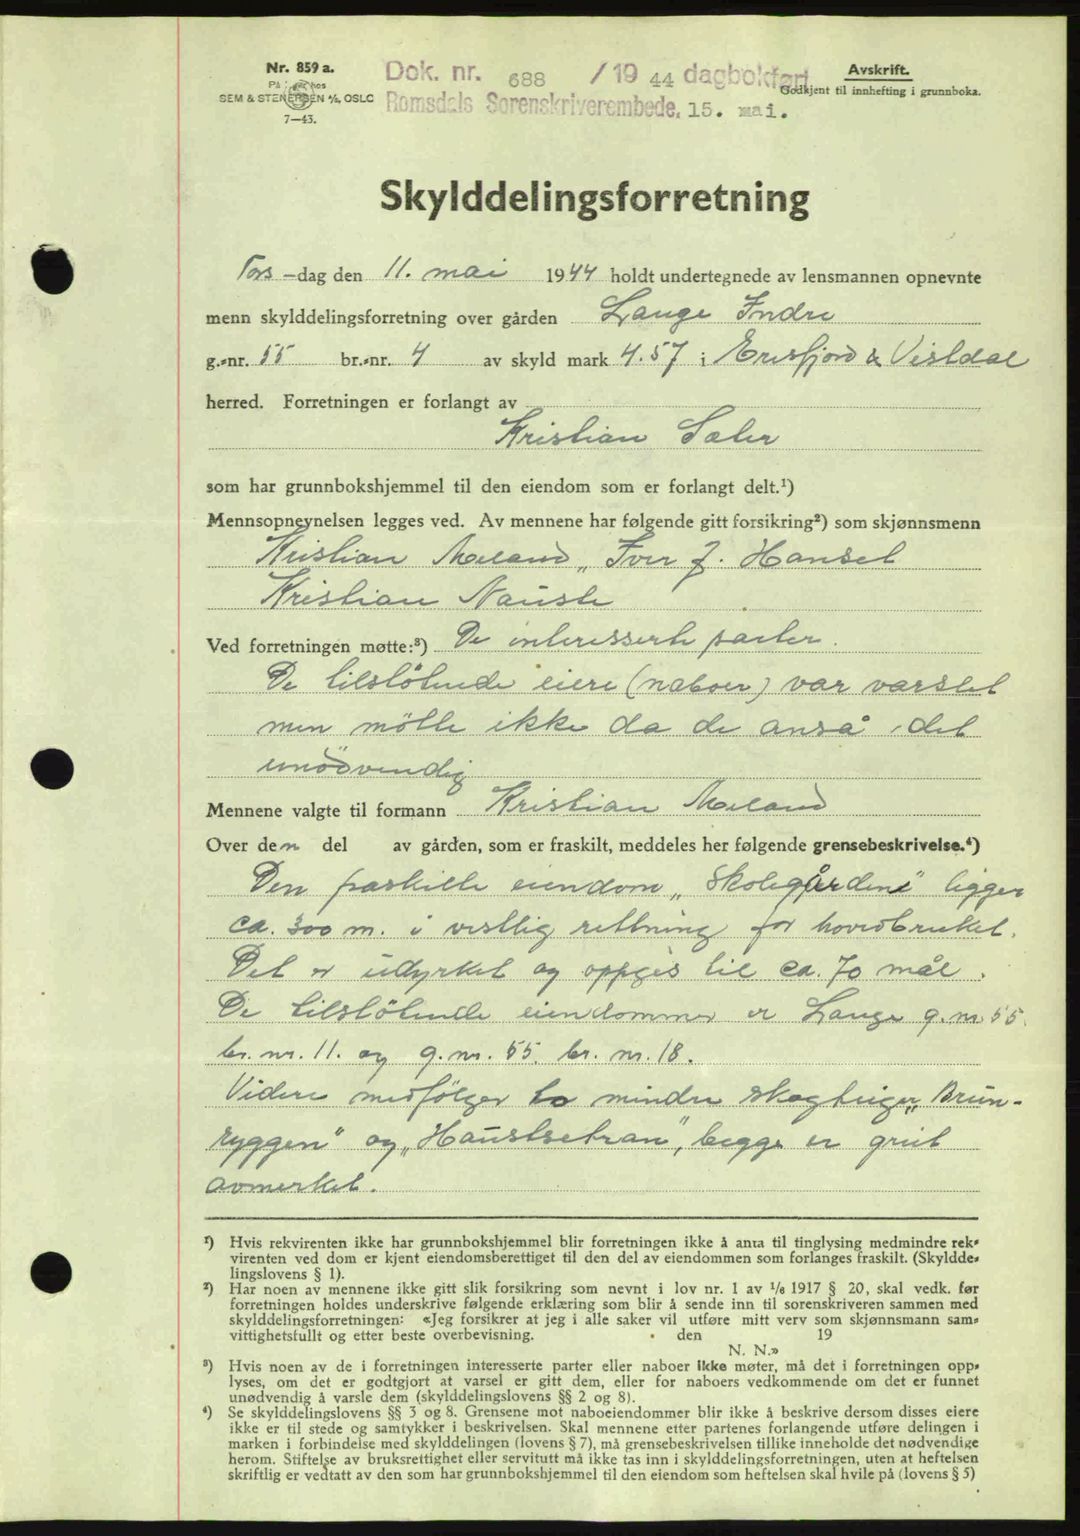 Nr. 859 a.
På lager hos
SEM & STENERSEN A/S, OSLO
7—43.
Dok. nr. 688 /19 44 dagbokført
Romsdals Sorenskriverembede, 15. mai.
Avskrift.
Godkjent til innhefting i grunnboka.
Skylddelingsforretning
Tors-dag den 11. mai 1944 holdt undertegnede av lensmannen opnevnte
menn skylddelingsforretning over gården Lange Indre
g.-nr. 55 br.-nr. 4 av skyld mark 4.57 i Eresfjord & Vistdal
herred. Forretningen er forlangt av
Kristian Sæter
som har grunnbokshjemmel til den eiendom som er forlangt delt.¹)
Mennsopneynelsen legges ved. Av mennene har følgende gitt forsikring²) som skjønnsmenn
Kristian Meland, Iver J. Hansel
Kristian Nauste
Ved forretningen møtte:³) De interesserte parter.
De tilstötende eiere (naboer) var varslet
men mötte ikke da de anså det
unödvendig
Mennene valgte til formann Kristian Meland
Over den del av gården, som er fraskilt, meddeles her følgende grensebeskrivelse.⁴)
Den fraskilte eiendom „Skolegården" ligger
ca. 300 m. i vestlig rettning for hovedbruket.
Det er udyrket og oppgis til ca. 70 mål.
De tilstötende eiendommer er Lange g.nr 55.
br. nr. 11. og g. nr. 55. br. nr. 18.
Videre medfölger to mindre skogteiger „Brun-
ryggen" og „Haustsetran", begge er greit
avmerket.
¹) Hvis rekvirenten ikke har grunnbokshjemmel blir forretningen ikke å anta til tinglysing medmindre rek-
virenten ved dom er kjent eiendomsberettiget til den del av eiendommen som forlanges fraskilt. (Skyldde-
lingslovens § 1).
²) Har noen av mennene ikke gitt slik forsikring som nevnt i lov nr. 1 av 1/6 1917 § 20, skal vedk. før
forretningen holdes underskrive følgende erklæring som blir å sende inn til sorenskriveren sammen med
skylddelingsforretningen: «Jeg forsikrer at jeg i alle saker vil utføre mitt verv som skjønnsmann sam-
vittighetsfullt og etter beste overbevisning. den 19
N. N.»
³) Hvis noen av de i forretningen interesserte parter eller naboer ikke møter, må det i forretningen opp-
lyses, om det er godtgjort at varsel er gitt dem, eller for naboers vedkommende om det er funnet
unødvendig å varsle dem (skylddelingslovens §§ 2 og 8).
⁴) Se skylddelingslovens §§ 3 og 8. Grensene mot naboeiendommer blir ikke å beskrive dersom disses eiere
ikke er til stede og samtykker i beskrivelsen. Skal mennene etter partenes forlangende utføre delingen i
marken i forbindelse med skylddelingen (lovens § 7), må grensebeskrivelsen tillike inneholde det nødvendige
herom. Stiftelse av bruksrettighet eller servitutt må ikke tas inn i skylddelingsforretningen, uten at heftelsen
skriftlig er vedtatt av den som har grunnbokshjemmel til den eiendom som heftelsen skal hvile på (lovens § 5)